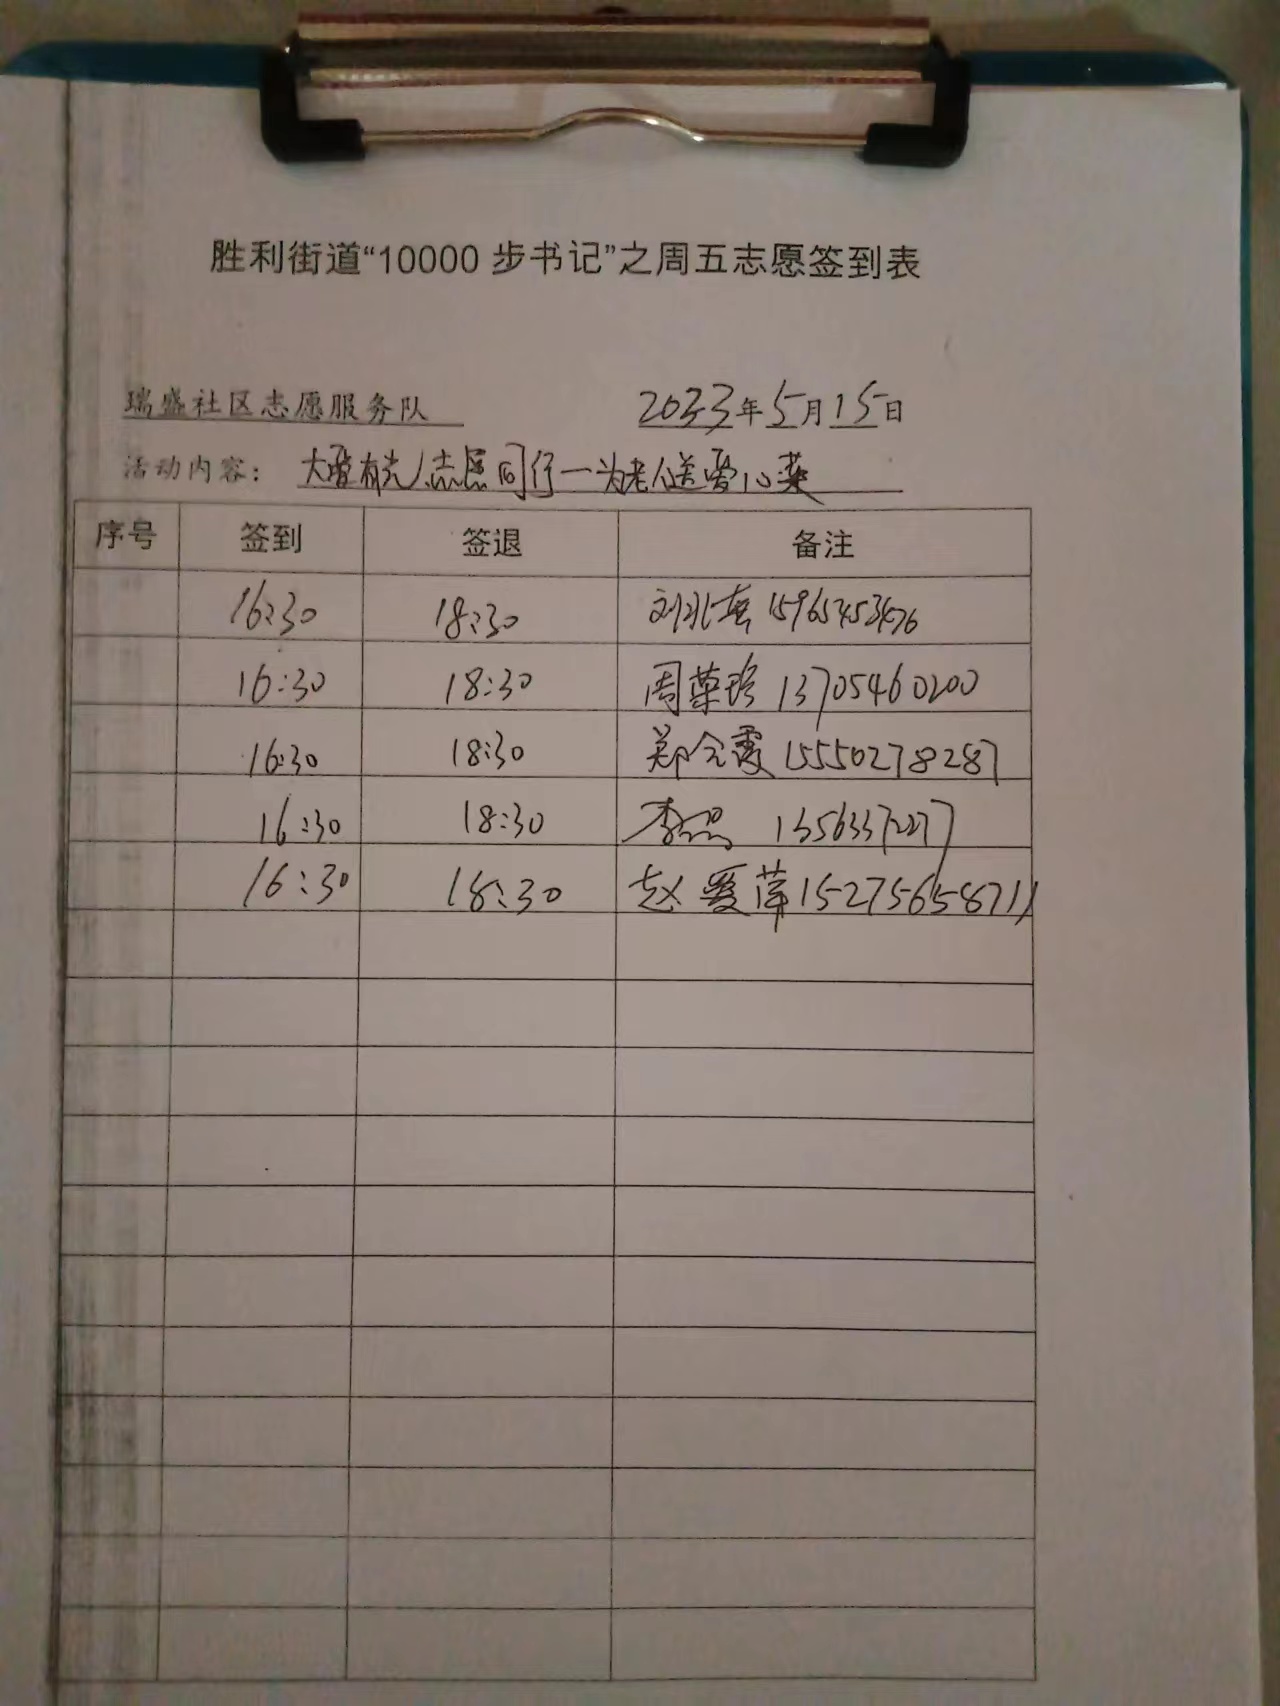 胜利街道“10000 步书记”之周五志愿签到表
瑞盛社区志愿服务队 2023年5月15日
活动内容: 大爱有光志愿同行一为老人送爱心菜
序号 签到 签退 备注
16:30 18:30 刘北 15965453476
16:30 18:30 周荣珍 13705460200
16:30 18:30 郑令霞 15550278287
16:30 18:30 李 13563372277
16:30 18:30 赵爱萍 15275658711